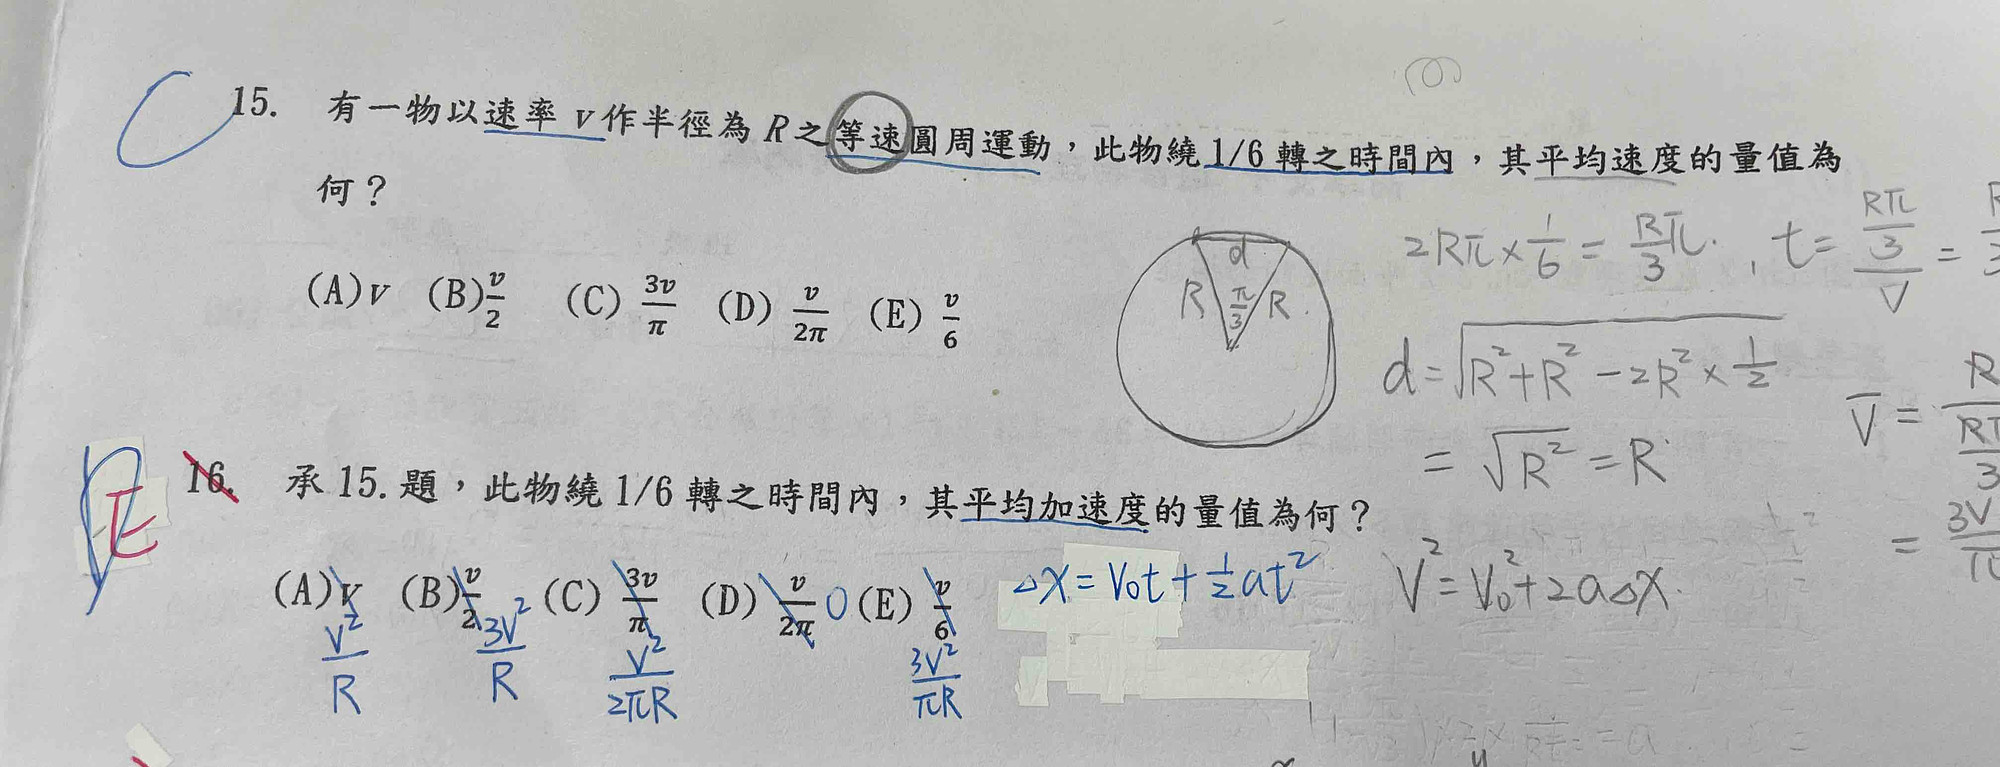 15. 有一物以速率 v 作半徑為 R 之等速圓周運動，此物繞 1/6 轉之時間內，其平均速度的量值為
何？
(A) v (B) v/2 (C) 3v/π (D) v/2π (E) v/6
2Rπ×1/6 = Rπ/3 . , t = (Rπ/3)/V =
d
R π/3 R
d = √(R²+R²-2R²×1/2)
= √R² = R
V̄ =
= 3V/π
E 16. 承 15. 題，此物繞 1/6 轉之時間內，其平均加速度的量值為何？
(A) v (B) v/2 (C) 3v/π (D) v/2π 0 (E) v/6
V²/R 3V²/R V²/2πR 3V²/πR
△X = V₀t + 1/2 at² V² = V₀² + 2a△X